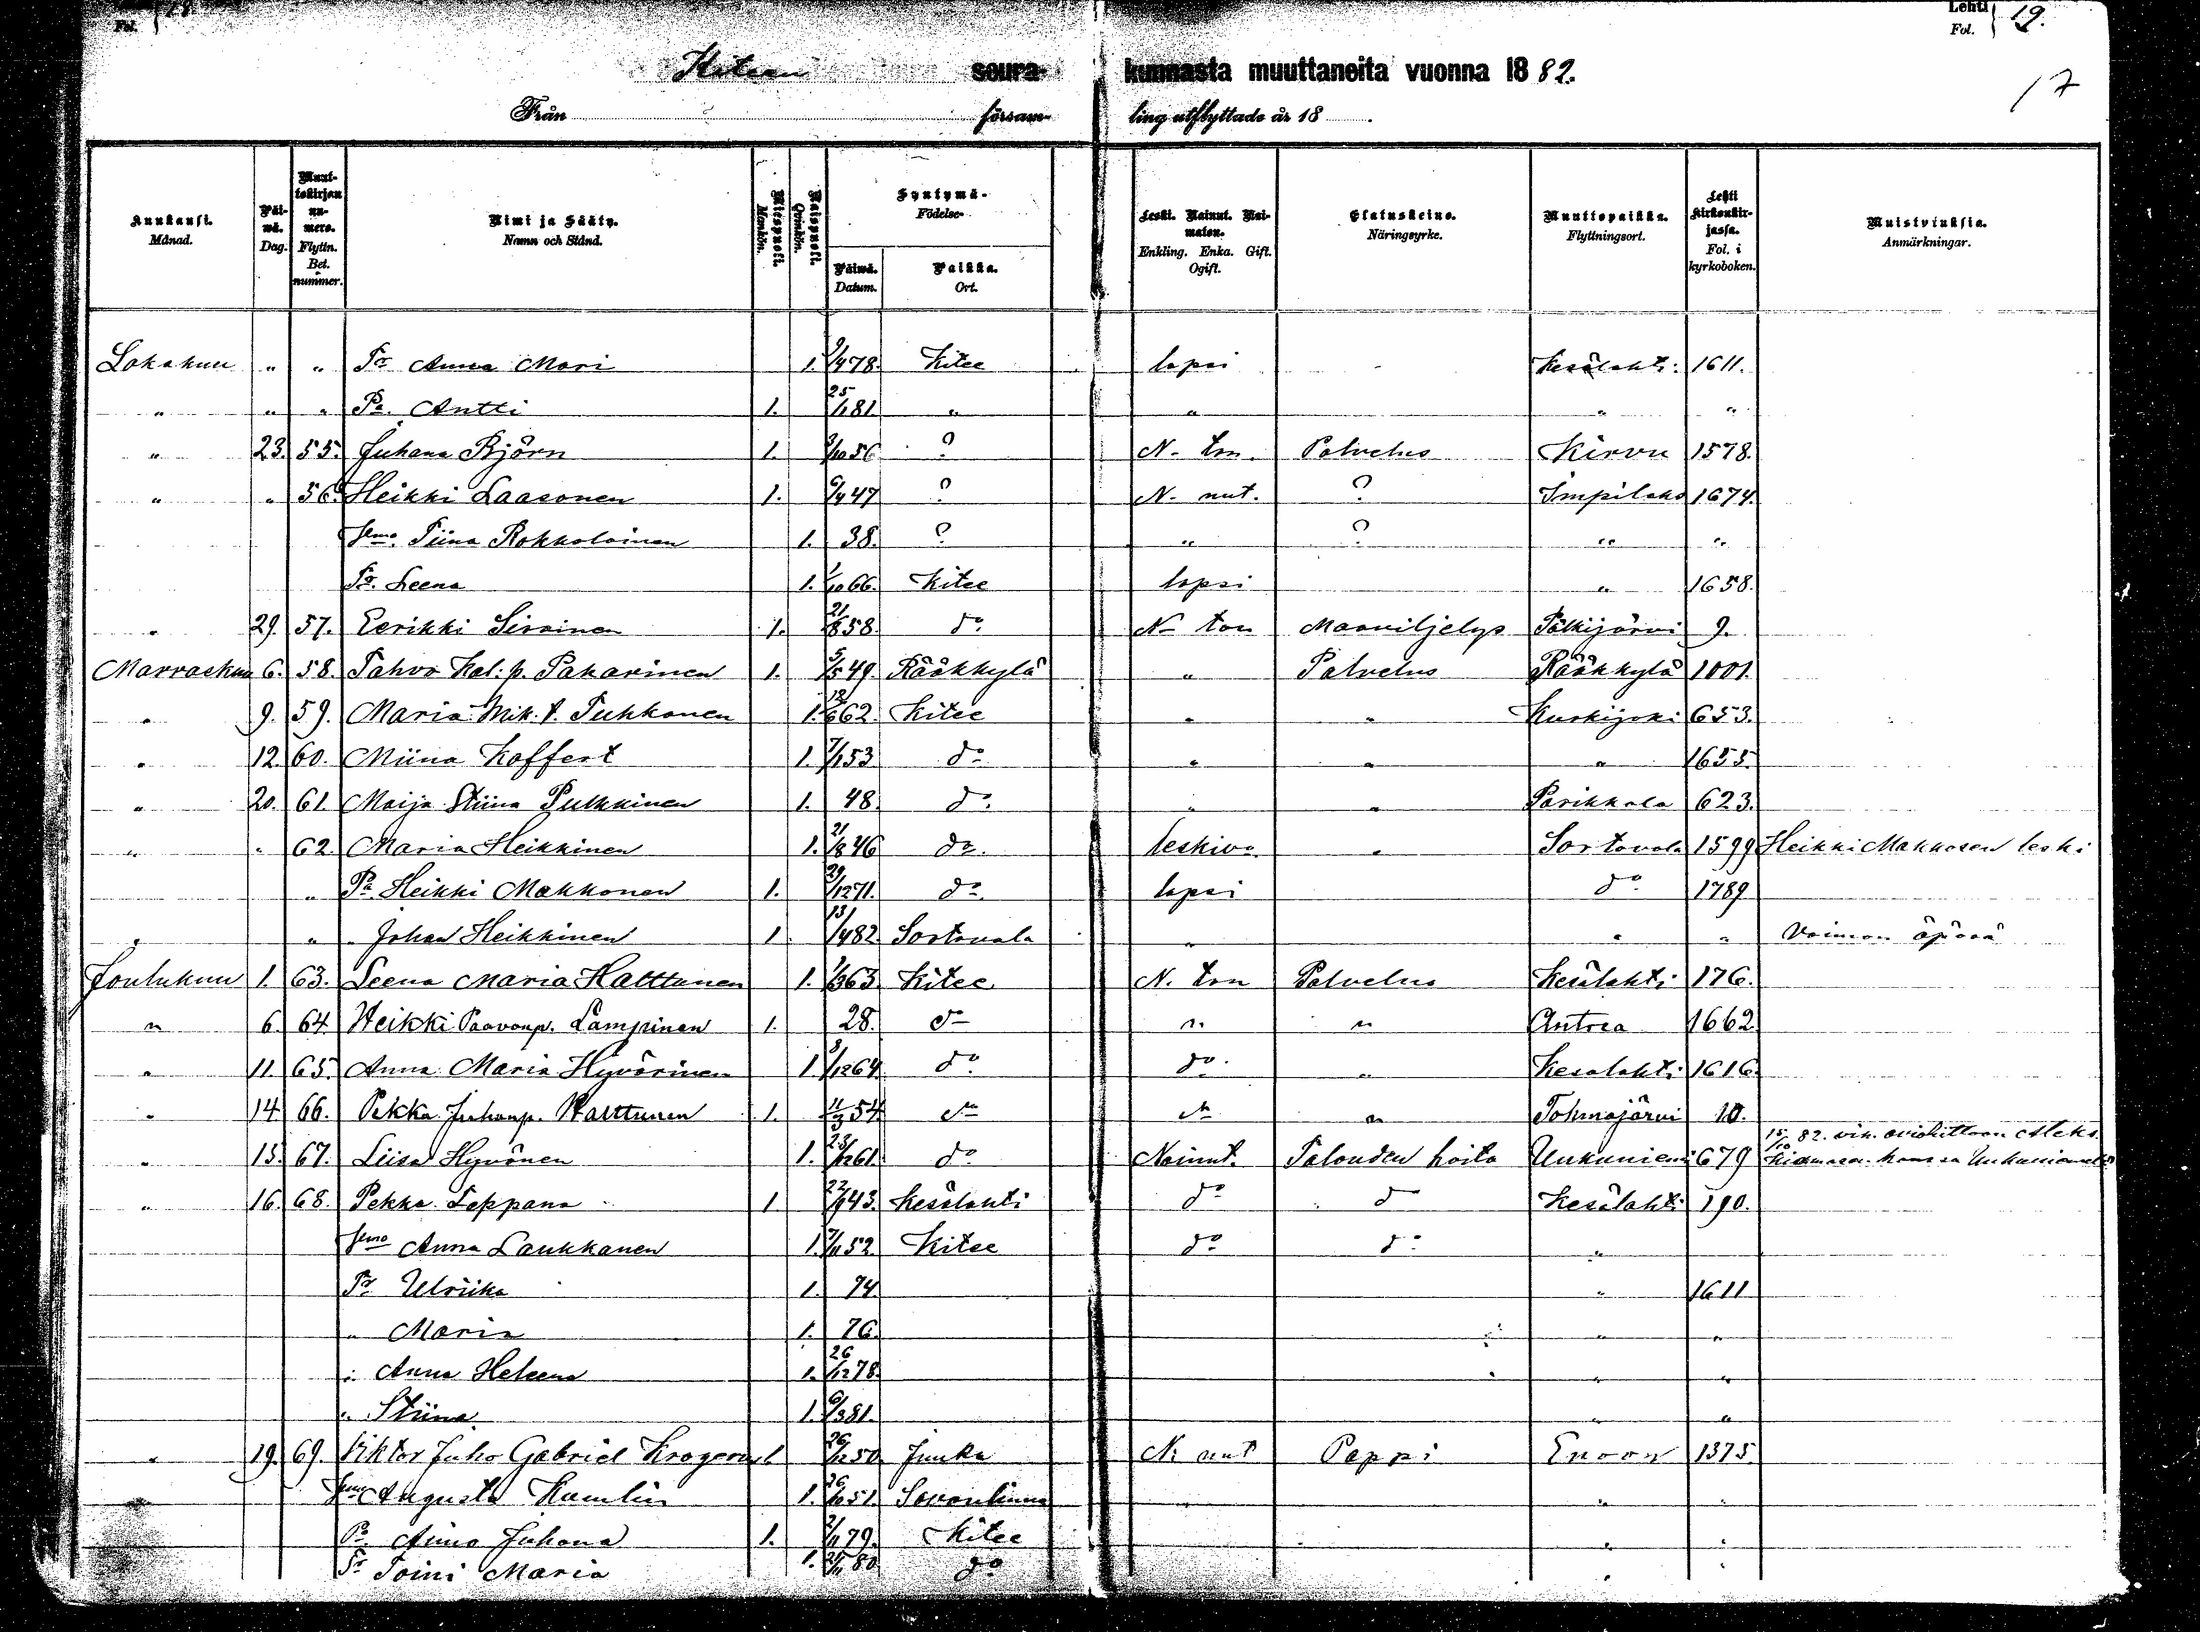 Fol. 18
Lehti Fol. 19.
Kiteen seura- kunnasta muuttaneita vuonna 1882.
17
Från försam- ling utflyttade år 18 .
Kuukausi. Månad. Päivä. Dag. Muuttokirjan numero. Flyttn. Bet. nummer. Nimi ja Sääty. Namn och Stånd. Miespuoli. Mankön. Vaimopuoli. Qvinkön. Syntymä- Födelse- Päivä. Datum. Paikka. Ort. Leski. Nainut. Naimaton. Enkling. Enka. Gift. Ogift. Elatuskeino. Näringsyrke. Muuttopaikka. Flyttningsort. Lehti kirkonkirjassa. Fol. i kyrkoboken. Muistutuksia. Anmärkningar.
Lokakuu " " Tr Anna Mari 1. 9/4 78. Kitee lapsi Kesälahti 1611.
" " " Pa. Antti 1. 25/1 81 " " " "
" 23. 55. Juhana Björn 1. 3/10 56 ? N. ton. Palvelus Kirvu 1578.
" " 56. Heikki Laasonen 1. 6/4 47 ? N. nut. ? Impilaks 1674.
Vmo. Tiina Rokkalainen 1. 38. ? " ? " "
Tr. Leena 1. 1/10 66. Kitee lapsi " 1658.
" 29. 57. Eerikki Sirainen 1. 21/8 58. do N- ton Maanviljelys Pälkijärvi 9.
Marraskuu 6. 58. Tahvo Kal: p. Pakarinen 1. 5/5 49. Rääkkylä " Palvelus Rääkkylä 1001.
" 9. 59. Maria Mik. t. Tuhkanen 1. 12/6 62. Kitee " " Kurkijoki 653.
" 12. 60. Miina Koffert 1. 7/1 53. do " " " 1655.
" 20. 61. Maija Stiina Pulkkinen 1. 48. do. " " Parikkala 623.
" " 62. Maria Heikkinen 1. 21/8 46 do. leskivo. " Sortavala 1599 Heikki Makkosen leski
" Pa. Heikki Makkonen 1. 29/12 71. do. lapsi do 1789
" " " Johan Heikkinen 1 13/4 82. Sortavala " " " Vaimon äpärä
Joulukuu 1. 63. Leena Maria Halttunen 1. 1/3 63. Kitee N. ton Palvelus Kesälahti 176.
" 6. 64. Heikki Paavonp. Lampinen 1. 28. do " " Antrea 1662
" 11. 65. Anna Maria Hyvärinen 1. 8/12 64. do. do. " Kesalahti 1616.
" 14 66. Pekka Juhanp. Halttunen 1. 11/3 54 do do " Tohmajärvi 10.
" 15. 67. Liisa Hyvönen 1. 23/12 61. do Nainut. Talouden hoito Uukuniemi 679 15/10 82. vih. avioliittoon Aleks. kanssa Uukuniemeltä
" 16. 68. Pekka Leppänä 1 22/9 43. Kesälahti do do Kesälahti 190.
Vmo Anna Laukkanen 1. 7/11 52. Kitee do do "
Tr Ulriika 1. 74 " 1611
" Maria 1. 76. " "
" Anna Heleena 1. 26/12 78. " "
" Stiina 1. 6/3 81. " "
" 19. 69. Viktor Juho Gabriel Krogerus 1 26/12 50. Juuka N. nut Pappi Enoon 1375.
Vmo Augusta Hamlin 1. 26/10 51. Savonlinna " " "
Pa. Aimo Juhana 1. 2/11 79. Kitee " "
Tr Toini Maria 1. 21/11 80 do " "